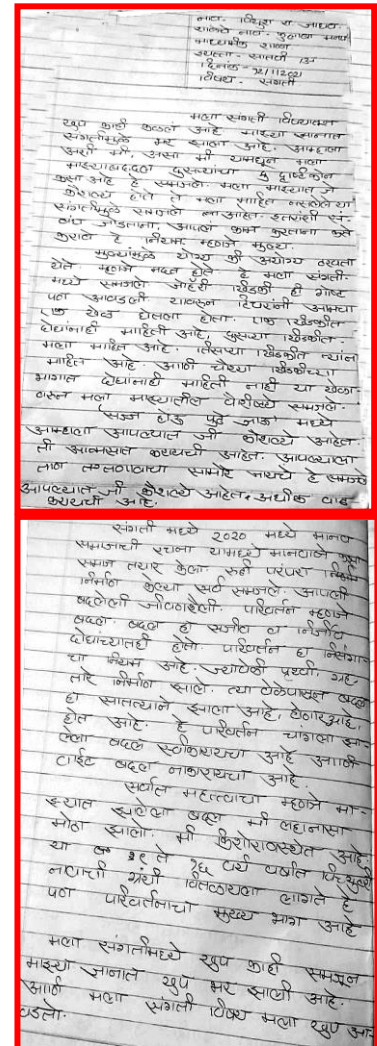 नाव- मयुरा रा जाधव
शाळेचे नाव-
माध्यमीक शाळा
इयत्ता - सातवी
दिनांक - 12/11/2021
विषय - संगती
मला संगती विषयातून
खूप काही कळलं आहे माझ्या ज्ञानात
संगतीमुळे भर झाला आहे. आम्हाला
अशी मी, असा मी यामधून मला
माझ्याबद्दल दुसऱ्यांचा दृष्टीकोन
कसा आहे हे समजले. मला माझ्यात जे
कौशल्य होते ते मला माहित नसलेले या
संगतीमुळे समजले आहेत. इतरांशी सं-
वाद जोडताना. आपलं काम करताना कसे
करावे हे नियम. म्हणजे मूल्य.
मूल्यांमुळे योग्य की अयोग्य ठरवता
येते. म्हणजे मदत होते हे मला संगती-
मध्ये समजले जोहरी खिडकी ही गोष्ट
पण आवडली. यावरून टिचरनी आमचा
एक खेळ घेतला होता. एक खिडकीत
दोघांनाही माहिती आहे, दुसऱ्या खिडकीत-
मला माहित आहे. तिसऱ्या खिडकीत त्यांना
माहित आहे. आणि चौथ्या खिडकीच्या
भागात दोघांनाही माहिती नाही या खेळा-
वरून मला माझ्यातील वैशिष्ट्ये समजले.
(सज्ज होऊ पुढे जाऊ) मध्ये
आम्हाला आपल्यात जी कौशल्ये आहेत.
ती आत्मसात करायची आहेत. आपल्याला
ताण तणावाचा सामोर जायचे हे समजले
आपल्यात जी कौशल्ये आहेत. अधीक वाढ
करायची आहे.
संगती मध्ये 2020 मध्ये मानव
समाजाची रचना यामध्ये मानवाने कसा
समाज तयार केला. रुढी परंपरा निर्माण
निर्माण केल्या सर्व समजले. आपली
बदलेली जीवनशैली. परिवर्तन म्हणजे
बदल. बदल हा सजीव व निर्जीव
दोघांच्यातही होतो. परिवर्तन हा निसर्गा-
चा नियम आहे. ज्यावेळी पृथ्वी, ग्रह-
तारे निर्माण झाले. त्या वेळेपासून बदल
हा सातत्याने झाला आहे, होणारआहे,
होत आहे. हे परिवर्तन चांगला झा-
लेला बदल स्विकारायचा आहे आणि
वाईट बदल नाकारायचा आहे.
सर्वात महत्त्वाचा म्हणजे मा-
झ्यात झालेला बदल मी लहानासा
मोठा झालो. मी किशोरावस्थेत आहे.
या ११ ते १६ वर्ष वर्षात पियुषी
नावाची ग्रंथी वितळायला लागते हे
पण परिवर्तनाचा मुख्य भाग आहे
मला संगतीमध्ये खूप काही समजून
माझ्या ज्ञानात खूप भर झाली आहे.
आणि मला संगती विषय मला खूप आ-
वडतो.